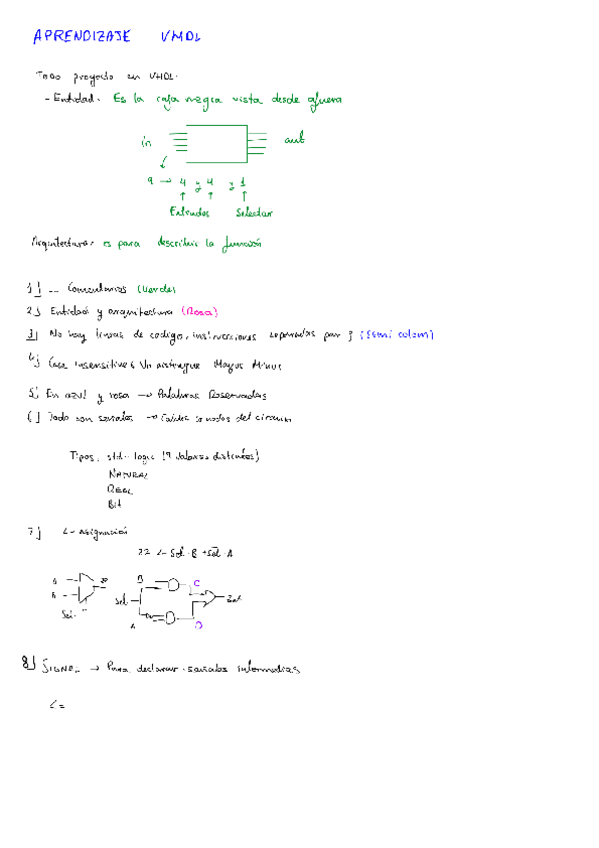 APRENDIZAJE VHDL
Todo proyecto en VHDL.
- Entidad. Es la caja negra vista desde afuera
in out
9 → 4 y 4 y 1
Entradas Selector
Arquitectura: es para describir la función
1] -- Comentarios (Verde)
2] Entidad y arquitectura (Rosa)
3] No hay lineas de codigo, instrucciones separadas por ; (Semi colom)
4] Case insensitive No distingue Mayus Minus
5] En azul y rosa → Palabras Reservadas
6] Todo son señales → Cables o nodos del circuito
Tipos: std-logic (9 valores distintos)
NATURAL
REAL
Bit
7] <- asignación
<- Sel · B + Sel · A
Sel
B C
Sel
A D
8] SIGNAL → Para declarar señales intermedias
<=